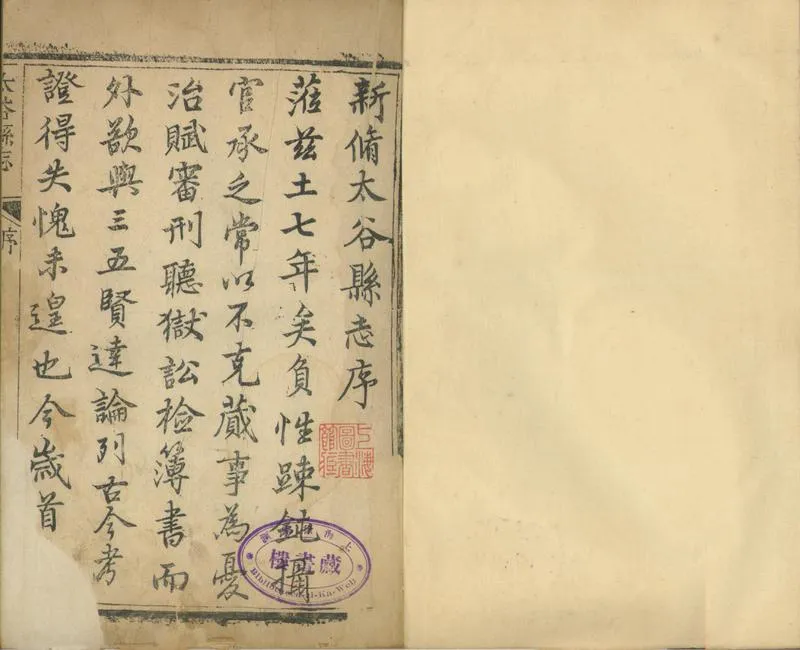 新脩太谷縣志序
蒞茲土七年矣負性踈鈍攝
官承乏常以不克蕆事為憂
治賦審刑聽獄訟檢簿書而
外欲與三五賢達論列古今考
證得失愧未遑也今歲首
太谷縣志
序
上海圖書館藏
藏書樓
Bibliotheca Zi-Ka-Wei